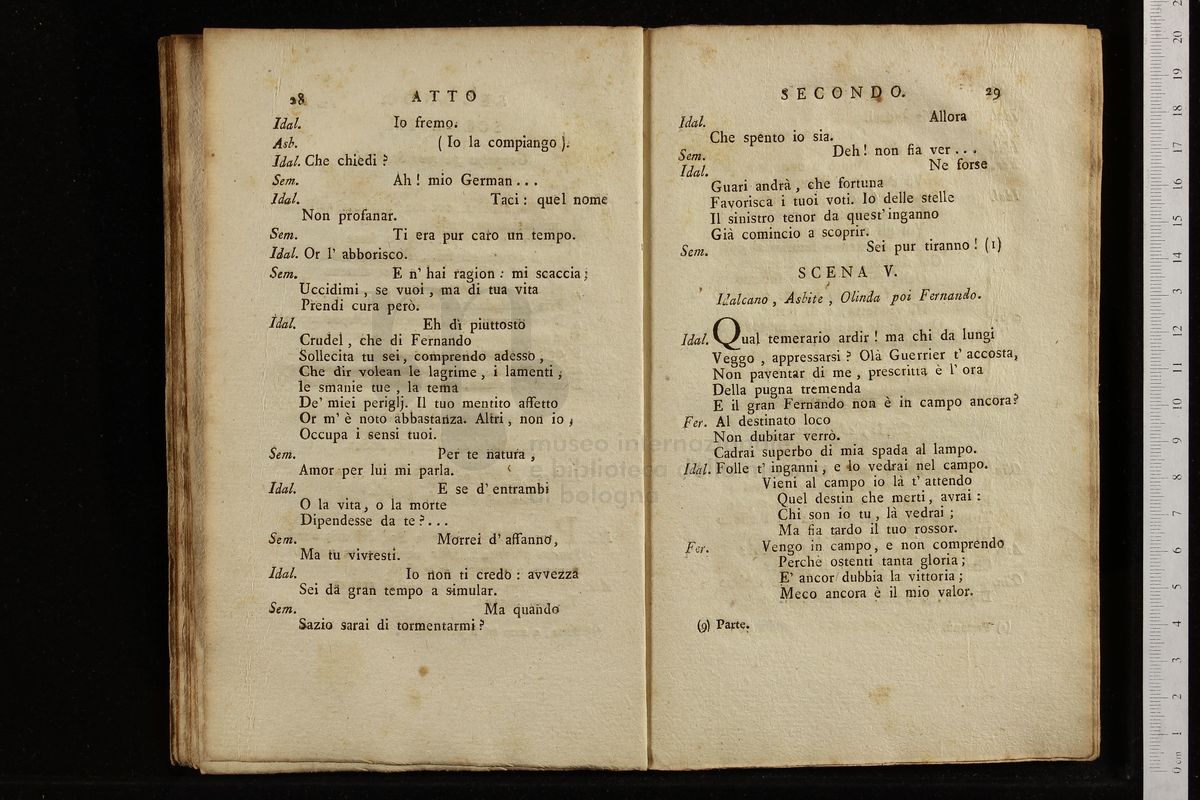 28 ATTO
Idal. Io fremo.
Asb. ( Io la compiango ).
Idal. Che chiedi ?
Sem. Ah ! mio German . . .
Idal. Taci : quel nome
Non profanar.
Sem. Ti era pur caro un tempo.
Idal. Or l' abborisco.
Sem. E n' hai ragion : mi scaccia ;
Uccidimi , se vuoi , ma di tua vita
Prendi cura però.
Idal. Eh dì piuttosto
Crudel , che di Fernando
Sollecita tu sei , comprendo adesso ,
Che dir volean le lagrime , i lamenti ,
le smanie tue , la tema
De' miei periglj. Il tuo mentito affetto
Or m' è noto abbastanza. Altri , non io ,
Occupa i sensi tuoi.
Sem. Per te natura ,
Amor per lui mi parla.
Idal. E se d' entrambi
O la vita , o la morte
Dipendesse da te ? . . .
Sem. Morrei d' affanno ,
Ma tu vivresti.
Idal. Io non ti credo : avvezza
Sei da gran tempo a simular.
Sem. Ma quando
Sazio sarai di tormentarmi ?
SECONDO. 29
Idal. Allora
Che spento io sia.
Sem. Deh ! non fia ver . . .
Idal. Ne forse
Guari andrà , che fortuna
Favorisca i tuoi voti. Io delle stelle
Il sinistro tenor da quest' inganno
Già comincio a scoprir.
Sem. Sei pur tiranno ! (1)
SCENA V.
Idalcano , Asbite , Olinda poi Fernando.
Idal. Qual temerario ardir ! ma chi da lungi
Veggo , appressarsi ? Olà Guerrier t' accosta,
Non paventar di me , prescritta è l' ora
Della pugna tremenda
E il gran Fernando non è in campo ancora?
Fer. Al destinato loco
Non dubitar verrò.
Cadrai superbo di mia spada al lampo.
Idal. Folle t' inganni , e lo vedrai nel campo.
Vieni al campo io là t' attendo
Quel destin che merti , avrai :
Chi son io tu , là vedrai ;
Ma fia tardo il tuo rossor.
Fer. Vengo in campo, e non comprendo
Perchè ostenti tanta gloria ;
E' ancor dubbia la vittoria ;
Meco ancora è il mio valor.
(9) Parte.
museo internaz
e biblioteca
di bologna